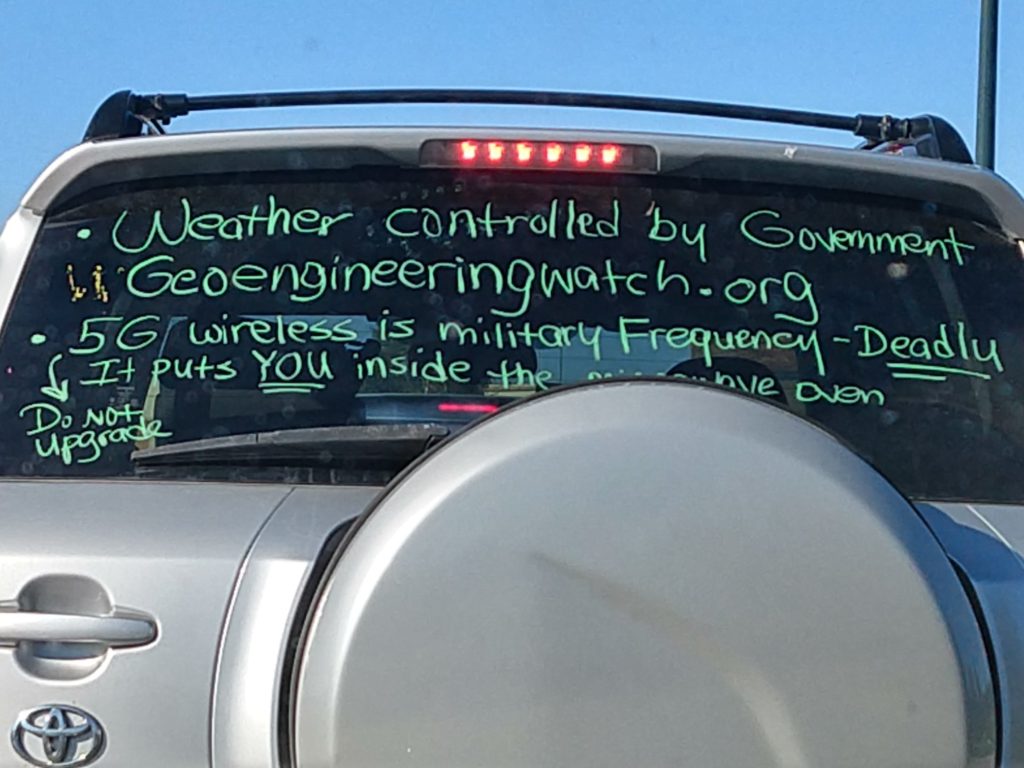 • Weather controlled by Government
Geoengineeringwatch.org
• 5G wireless is military Frequency - Deadly
It puts YOU inside the microwave oven
Do Not
upgrade